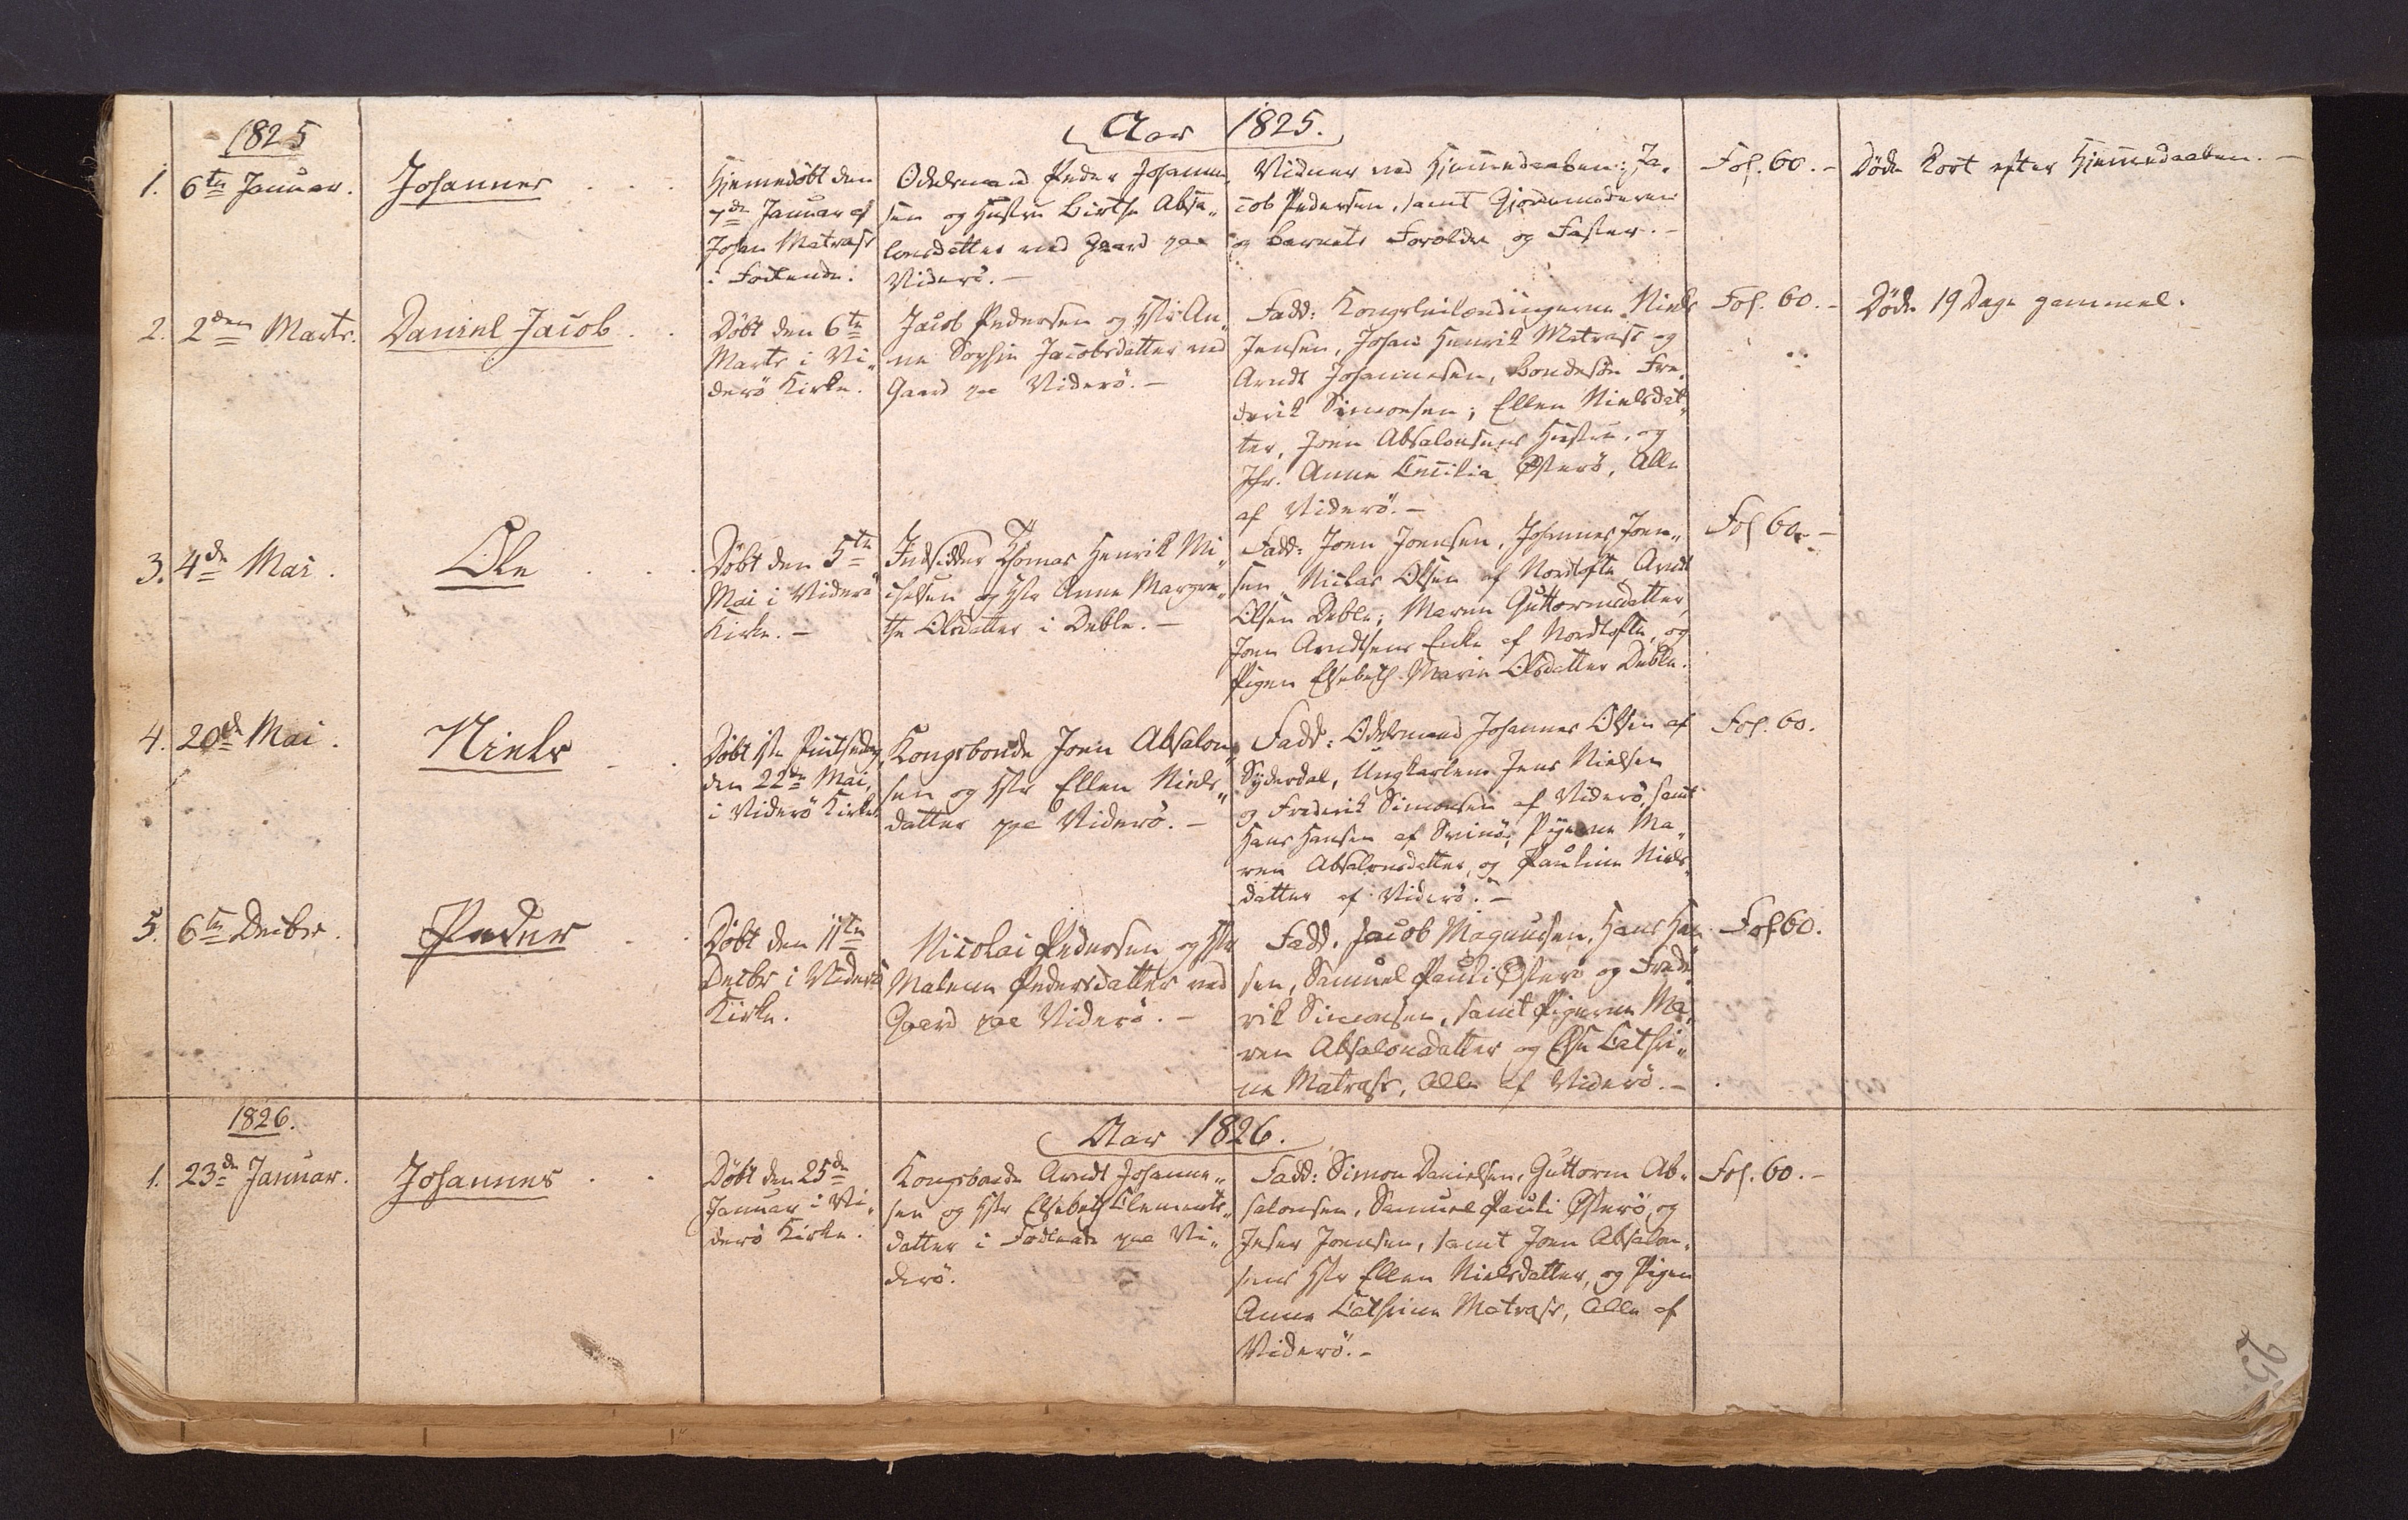 Aar 1825.
1825
1. 6te Januar.
Johannes
Hjemedöbt den
7de Januar af
Johan Matrass
i Fodlende.
Odelsmand Peder Johanne-
sen og Hustru Birthe Absa-
lonsdatter ved Gaard paa
Viderö.-
Vidner ved Hjemmedaaben: Ja-
cob Pedersen, samt Gjordemoderen
og Barnets Forældre og Faster.-
Fol. 60.-
Döde kort efter Hjemmedaaben.-
2. 2den Marts.
Daniel Jacob
Döbt den 6te
Marts i Vi-
derö Kirke.
Jacob Pedersen og Hstr An-
ne Sophie Jacobsdatter ved
Gaard paa Viderö.-
Fadd: Kongsleilændingerne Niels
Jensen, Johan Henrik Matrass og
Arndt Johannesen, Bondesön Fre-
derik Simonsen; Ellen Nielsdat-
ter, Joen Absalonsens Hustru, og
Jfr. Anne Cecilia Østerö, Alle
af Viderö.-
Fol. 60.-
Döde 19 Dage gammel.
3. 4de Mai.
Ole
Döbt den 5te
Mai i Viderö
Kirke.-
Indsidder Thomas Henrik Mi-
chelsen og Hstr Anne Margre-
the Olsdatter i Deble.-
Fadd: Joen Joensen, Johannes Joen-
sen, Niclas Olsen af Nordtofte Arndt
Olsen Deble; Maren Guttormsdatter,
Joen Arndtsens Enke af Nordtofte, og
Pigen Elsebeth Marie Olsdatter Deble.
Fol 60.-
4. 20de Mai.
Niels
Döbt 1ste Pintsedag
den 22de Mai,
i Viderö Kirke
Kongsbonde Joen Absalon-
sen og Hstr Ellen Niels-
datter paa Viderö.-
Fadd: Odelsmand Johannes Olsen af
Syderdal, Ungkarlene Jens Nielsen
og Frederik Simonsen af Viderö, samt
Hans Hansen af Svinö; Pigerne Ma-
ren Absalonsdatter, og Pauline Niels-
datter af Viderö.-
Fol. 60.
5. 6te Decbr.
Peder
Döbt den 11te
Decbr i Viderö
Kirke.
Nicolai Pedersen og Hstr
Malene Pedersdatter ved
Gaard paa Viderö.-
Fadd. Jacob Magnusen, Hans Han-
sen, Samuel Pauli Østerö og Frede-
rik Simonsen, samt Pigerne Ma-
ren Absalonsdatter og Else Cathri-
ne Matrass, Alle af Viderö.-
Fol 60.
Aar 1826.
1826.
1. 23de Januar.
Johannes
Döbt den 25de
Januar i Vi-
derö Kirke.
Kongsbonde Arndt Johanne-
sen og Hstr Elsebeth Clements-
datter i Fodlende paa Vi-
derö.
Fadd: Simon Danielsen, Guttorm Ab-
salonsen, Samuel Pauli Østerö, og
Jesper Joensen, samt Joen Absalon-
sens Hstr Ellen Nielsdatter, og Pigen
Anne Cathrine Matrass, Alle af
Viderö.-
Fol. 60.-
25.